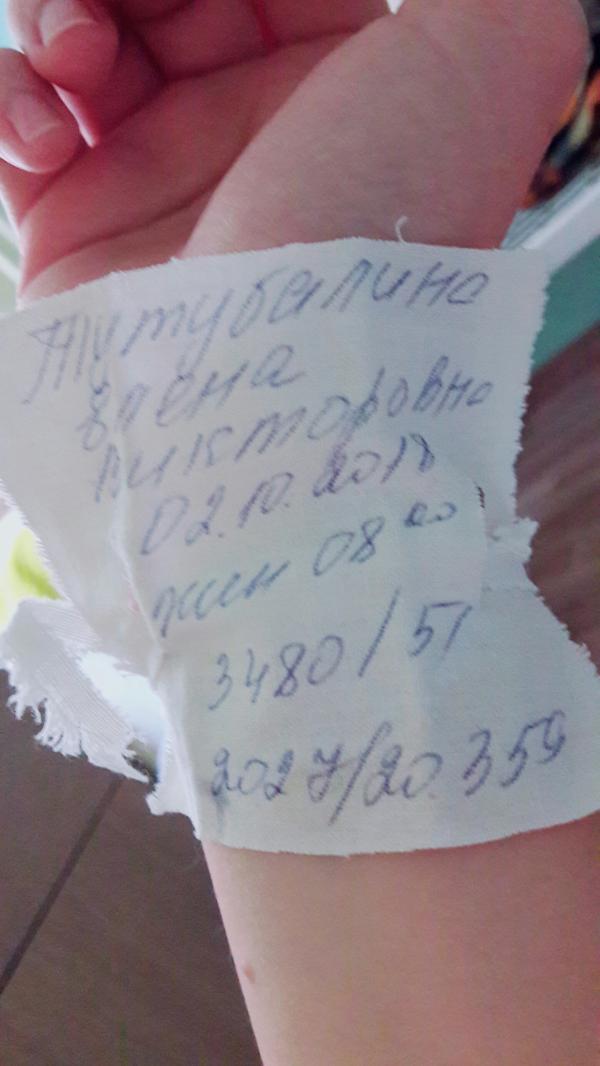 Титубалина
Елена
Викторовна
02.10.2018
жен 08 20
3480/51
2027/20.359